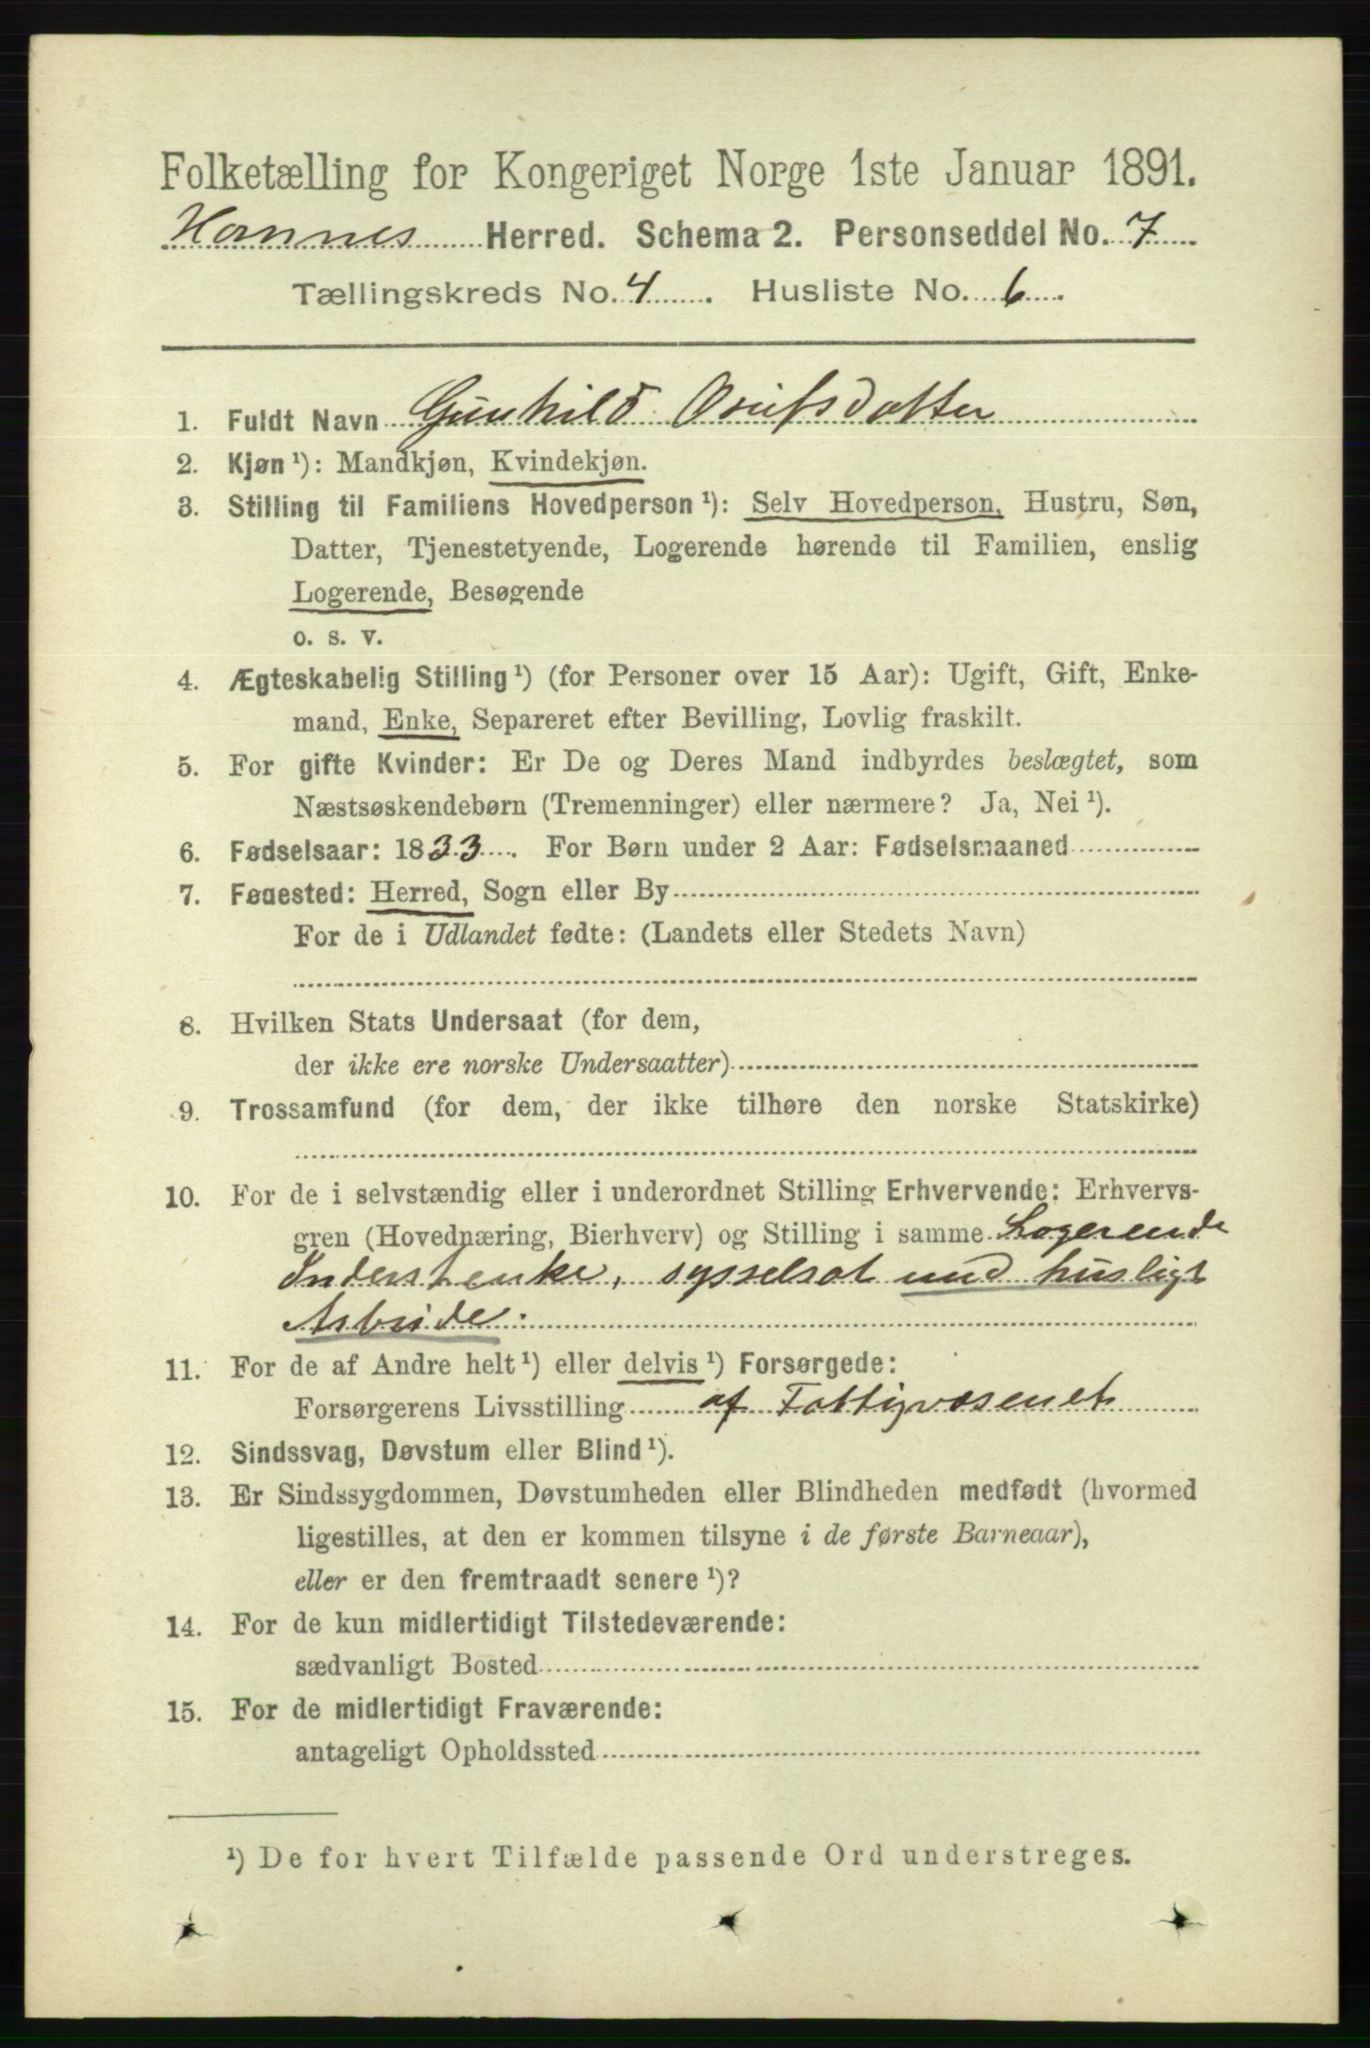 Folketælling for Kongeriget Norge 1ste Januar 1891.
Hornnes Herred. Schema 2. Personseddel No. 7
Tællingskreds No. 4. Husliste No. 6.
1. Fuldt Navn Gunhild Osufsdatter
2. Kjøn ¹): Mandkjøn, Kvindekjøn.
3. Stilling til Familiens Hovedperson ¹): Selv Hovedperson, Hustru, Søn,
Datter, Tjenestetyende, Logerende hørende til Familien, enslig
Logerende, Besøgende
o. s. v.
4. Ægteskabelig Stilling ¹) (for Personer over 15 Aar): Ugift, Gift, Enke-
mand, Enke, Separeret efter Bevilling, Lovlig fraskilt.
5. For gifte Kvinder: Er De og Deres Mand indbyrdes beslægtet, som
Næstsøskendebørn (Tremenninger) eller nærmere? Ja, Nei ¹).
6. Fødselsaar: 1833. For Børn under 2 Aar: Fødselsmaaned
7. Fødested: Herred, Sogn eller By
For de i Udlandet fødte: (Landets eller Stedets Navn)
8. Hvilken Stats Undersaat (for dem,
der ikke ere norske Undersaatter)
9. Trossamfund (for dem, der ikke tilhøre den norske Statskirke)
10. For de i selvstændig eller i underordnet Stilling Erhvervende: Erhvervs-
gren (Hovednæring, Bierhverv) og Stilling i samme Logerende
Inderstenke, sysselsat med husligt
Arbeide.
11. For de af Andre helt ¹) eller delvis ¹) Forsørgede:
Forsørgerens Livsstilling af Fattigvæsenet
12. Sindssvag, Døvstum eller Blind ¹).
13. Er Sindssygdommen, Døvstumheden eller Blindheden medfødt (hvormed
ligestilles, at den er kommen tilsyne i de første Barneaar),
eller er den fremtraadt senere ¹)?
14. For de kun midlertidigt Tilstedeværende:
sædvanligt Bosted
15. For de midlertidigt Fraværende:
antageligt Opholdssted
¹) De for hvert Tilfælde passende Ord understreges.